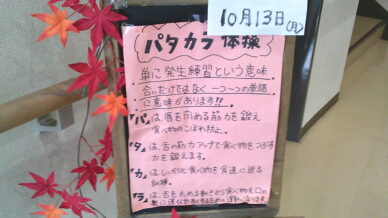 10月13日(月)
パタカラ体操
単に発生練習という意味
合いだけではなく一つ一つの単語
に意味があります!!
「パ」は唇を閉める筋力を鍛え
食べ物のこぼれ防止。
「タ」は、舌の筋力アップで食べ物をつぶす
力を鍛えます。
「カ」はしっかりと食べ物を食道に送る
訓練。
「ラ」は、舌を丸める動きから食べ物を口の
奥に運び